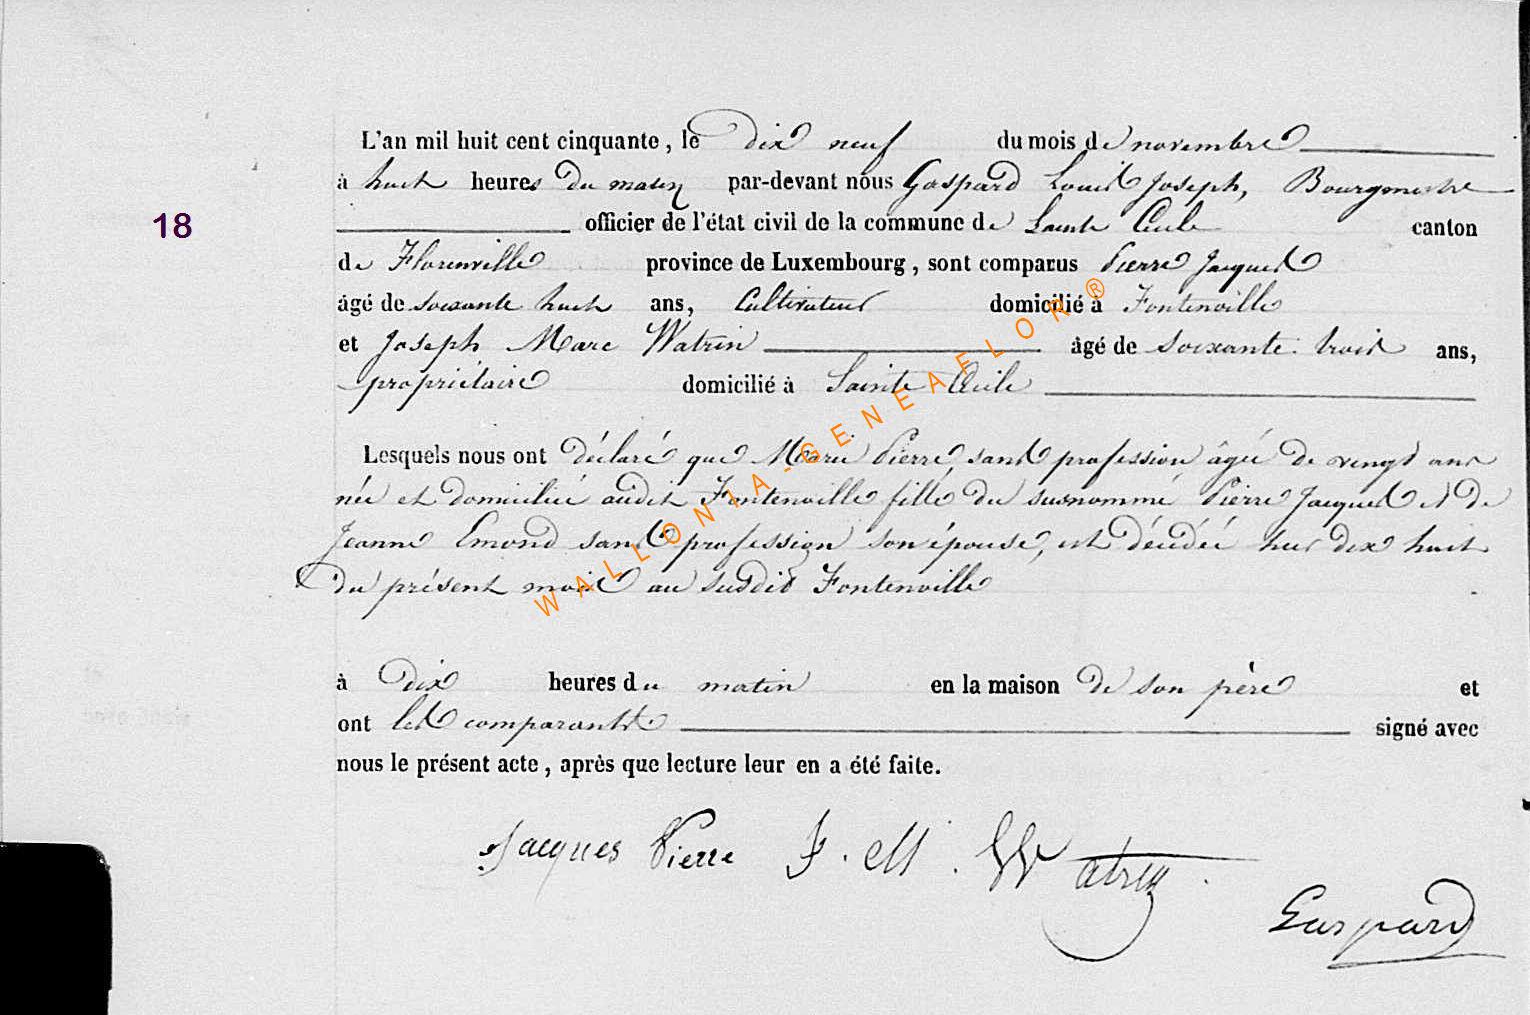 L'an mil huit cent cinquante, le dix neuf du mois de novembre
à huit heures du matin par-devant nous Gaspard Louis Joseph, Bourgmestre
18
officier de l'état civil de la commune de Sainte Cécile canton
de Florenville province de Luxembourg, sont comparus Pierre Jacques
âgé de soixante huit ans, Cultivateur domicilié à Fontenoille
et Joseph Marc Watrin âgé de soixante trois ans,
propriétaire domicilié à Sainte Cécile
Lesquels nous ont déclaré que Marie Pierre, sans profession âgée de vingt ans
née et domiciliée audit Fontenoille fille du susnommé Pierre Jacques et de
Jeanne Emond sans profession son épouse, est décédée hier dix huit
du présent mois au susdit Fontenoille
à dix heures du matin en la maison de son père et
ont les comparants signé avec
nous le présent acte, après que lecture leur en a été faite.
Jacques Pierre J. M. Watrin
Gaspard
WALLONIA-GENEAELOR®